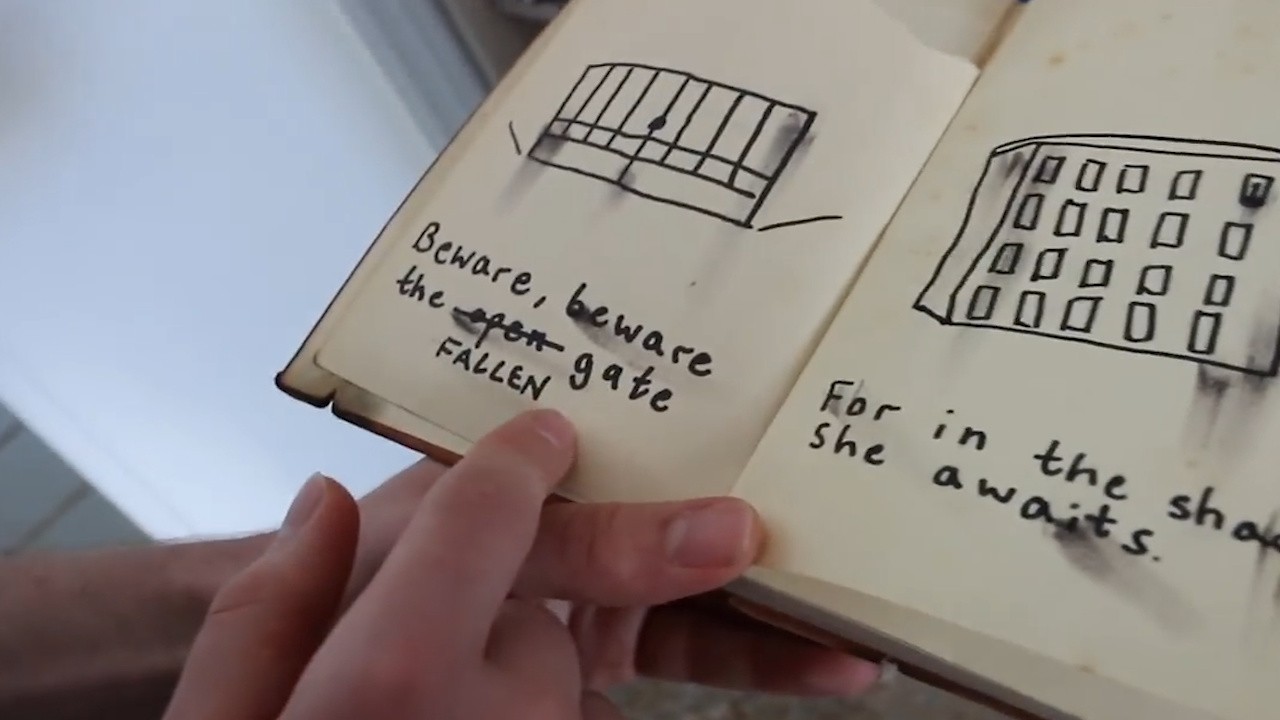 Beware, beware
the open gate
FALLEN
For in the
she awaits.